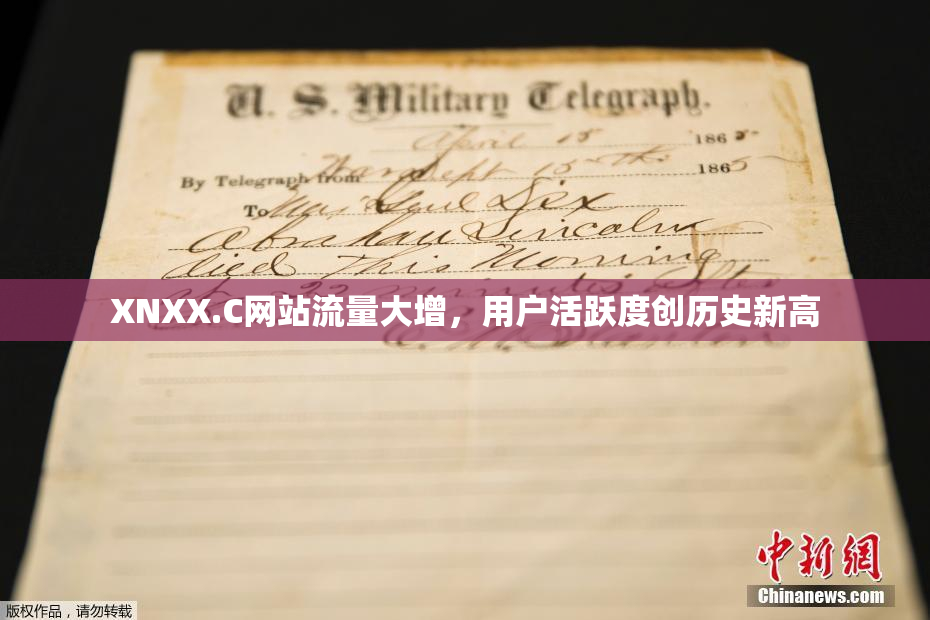 U. S. Military Telegraph.
April 15 1865
By Telegraph from War Dept 15th 1865
To Maj Genl Dix
Abraham Lincoln
died This Morning
at 22 minutes after
XNXX.C网站流量大增，用户活跃度创历史新高
E. M. Stanton
中新网
Chinanews.com
版权作品，请勿转载